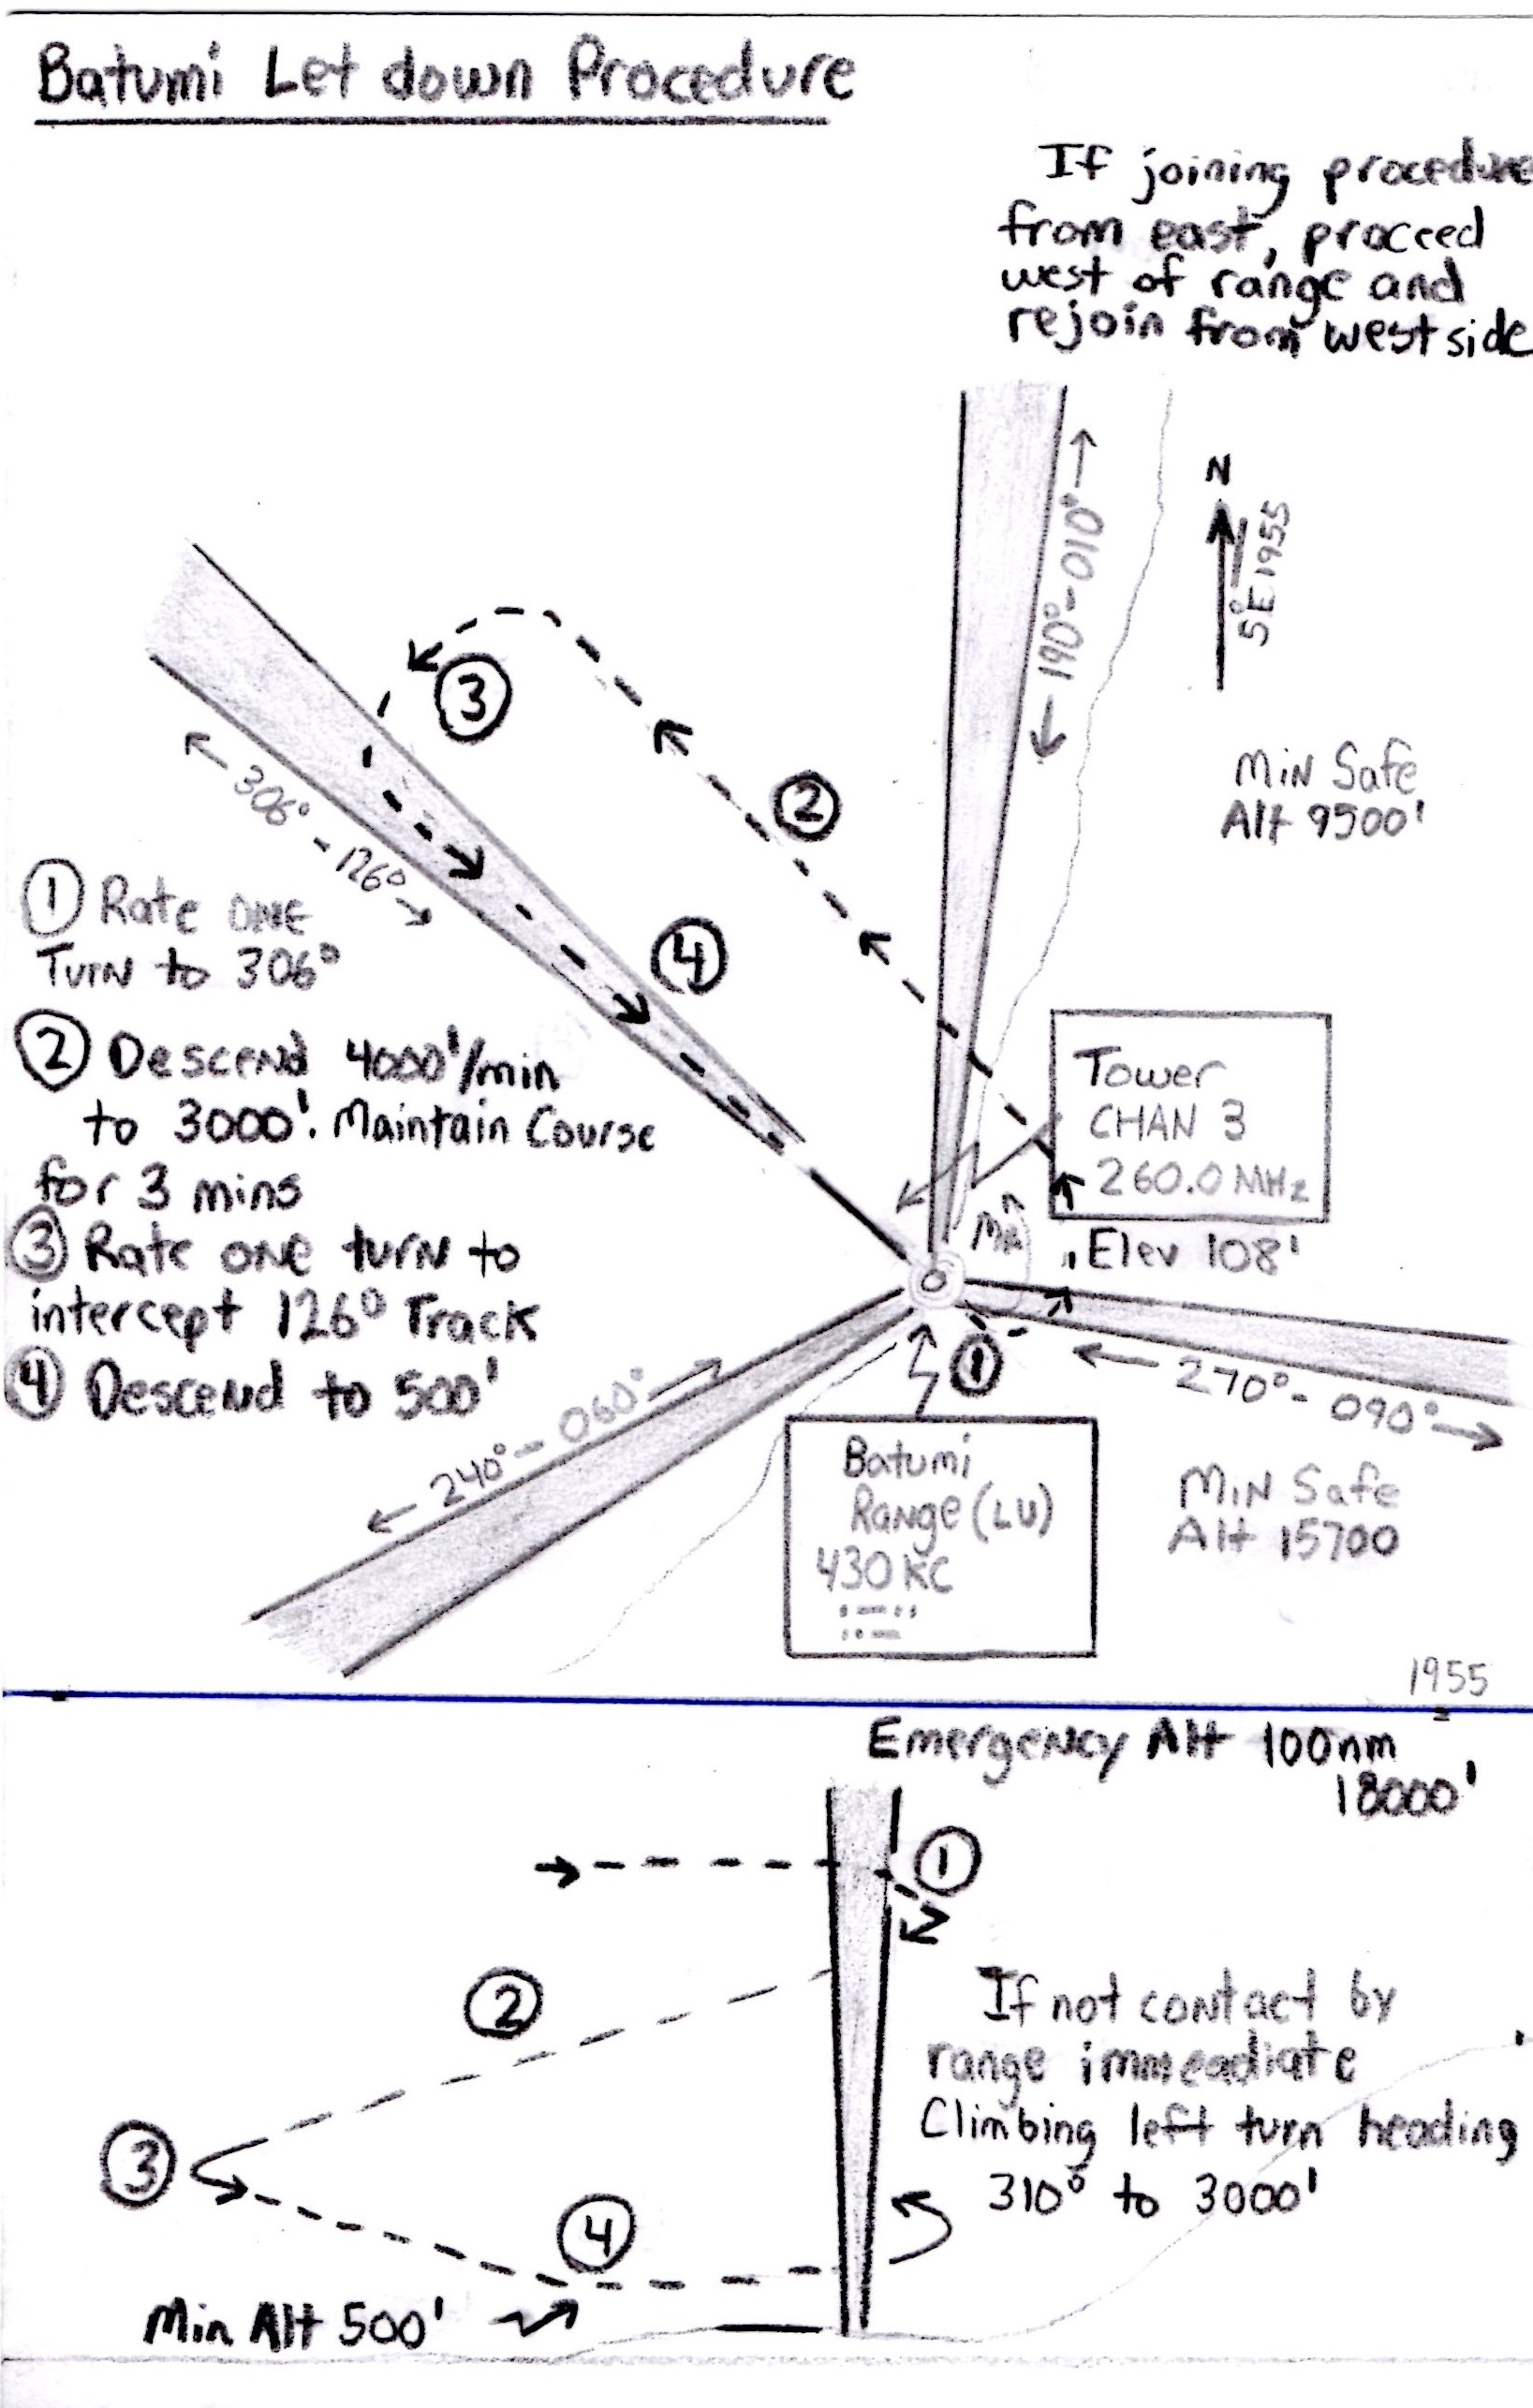 Batumi Let down Procedure
If joining procedure
from east, proceed
west of range and
rejoin from west side
N
5°E 1955
190°-010°
Min Safe
Alt 9500'
3
2
306° - 126°
4
1 Rate ONE
Turn to 306°
2 Descend 4000'/min
to 3000'. Maintain Course
for 3 mins
3 Rate one turn to
intercept 126° Track
4 Descend to 500'
Tower
CHAN 3
260.0 MHz
Elev 108'
1
270° - 090°
240° - 060°
Batumi
Range (LU)
430 KC
.-..
..-
Min Safe
Alt 15700
1955
Emergency Alt 100nm
18000'
1
2
If not contact by
range immeadiate
Climbing left turn heading
310° to 3000'
3
4
Min Alt 500'